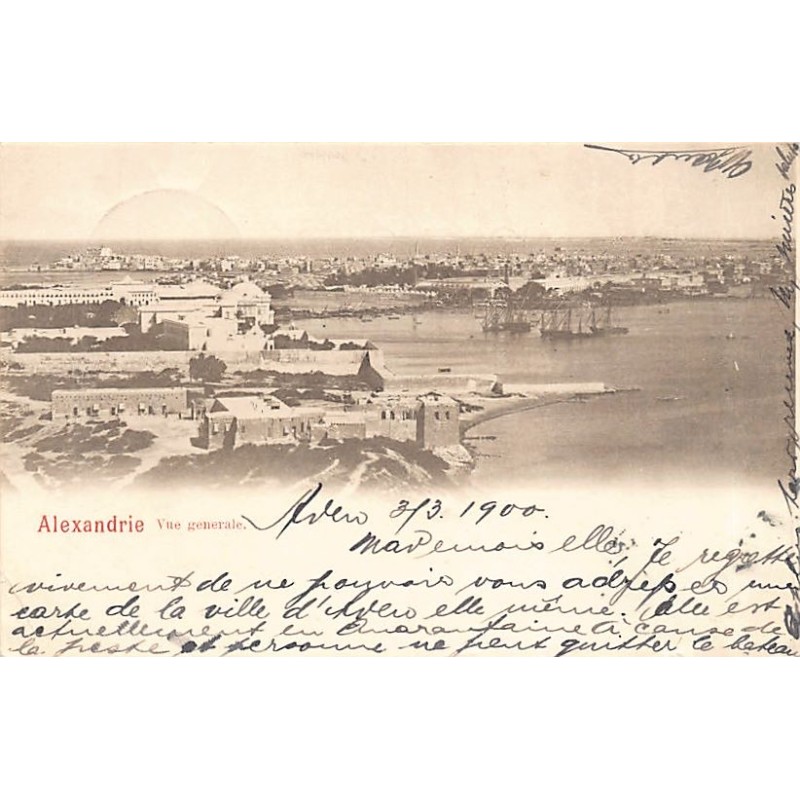 Alexandrie Vue generale.
Aden 3/3. 1900.
Mademoiselle, Je regrette
vivement de ne pouvoir vous
carte de la ville d'Aden elle même. Elle est
actuellement en Quarantaine à cause de
la peste et personne ne peut quitter le bateau